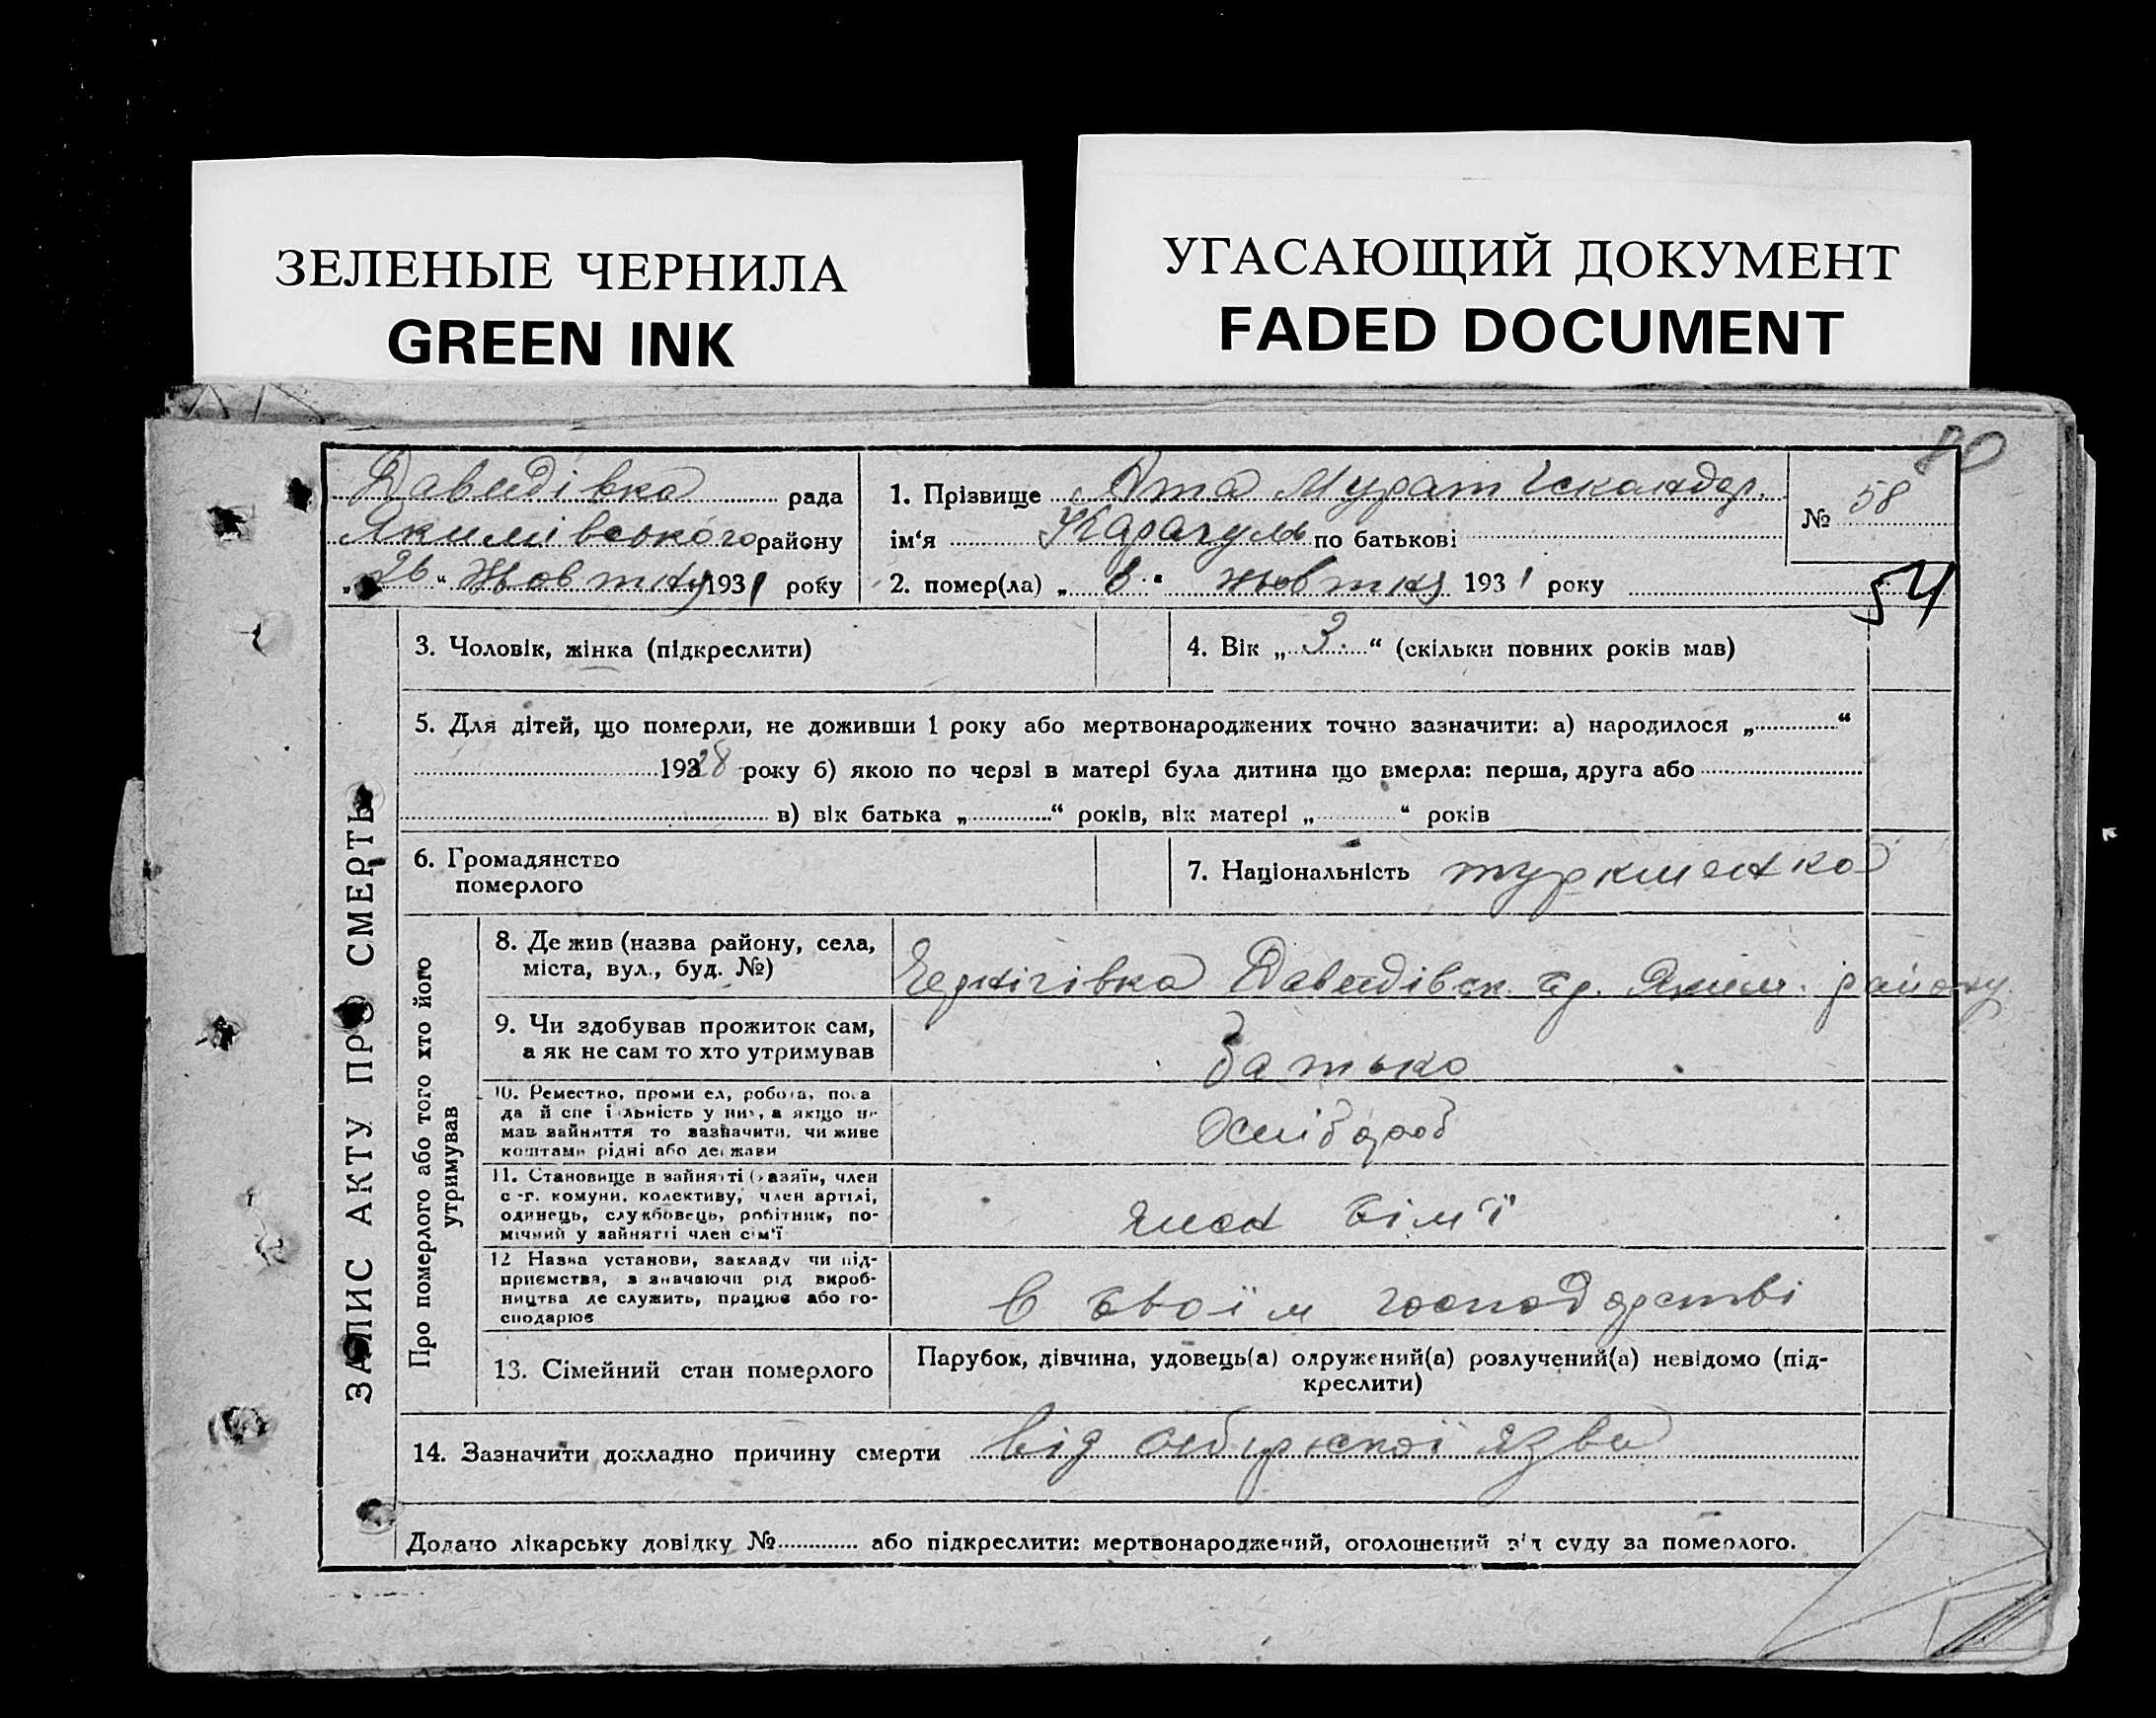 ЗЕЛЕНЫЕ ЧЕРНИЛА
GREEN INK
УГАСАЮЩИЙ ДОКУМЕНТ
FADED DOCUMENT
80
Давидівка рада
Якимівського району
„26“ Жовтня 1931 року
1. Прізвище Ата Мурат Іскандер.
ім‘я Карагуль по батькові
2. помер(ла) „ 6 “ жовтня 1931 року
№ 58
54
ЗАПИС АКТУ ПРО СМЕРТЬ
3. Чоловік, жінка (підкреслити)
4. Вік „ 3. “ (скільки повних років мав)
5. Для дітей, що померли, не доживши 1 року або мертвонароджених точно зазначити: а) народилося „ “
19328 року б) якою по черзі в матері була дитина що вмерла: перша, друга або
в) вік батька „ “ років, вік матері „ “ років
6. Громадянство
померлого
7. Національність туркменка
Про померлого або того хто його
утримував
8. Де жив (назва району, села,
міста, вул., буд. №)
Чернігівка Давидівск. ср. Яким. району
9. Чи здобував прожиток сам,
а як не сам то хто утримував
батько
10. Ремество, проми ел, робота, поса
да й спе іальність у них, а якщо не
мав зайняття то зазначити, чи живе
коштами рідні або держави
Хлібороб
11. Становище в зайнятті (хазяїн, член
с-г. комуни, колективу, член артілі,
одинець, службовець, робітник, по-
мічний у зайнятті член сім‘ї
член сім'ї
12 Назва установи, закладу чи під-
приємства, зазначаючи рід вироб-
ництва де служить, працює або го-
сподарює
в своїм господарстві
13. Сімейний стан померлого
Парубок, дівчина, удовець(а) одружений(а) розлучений(а) невідомо (під-
креслити)
14. Зазначити докладно причину смерти від сибирской язви
Додано лікарську довідку № або підкреслити: мертвонароджений, оголошений від суду за померлого.